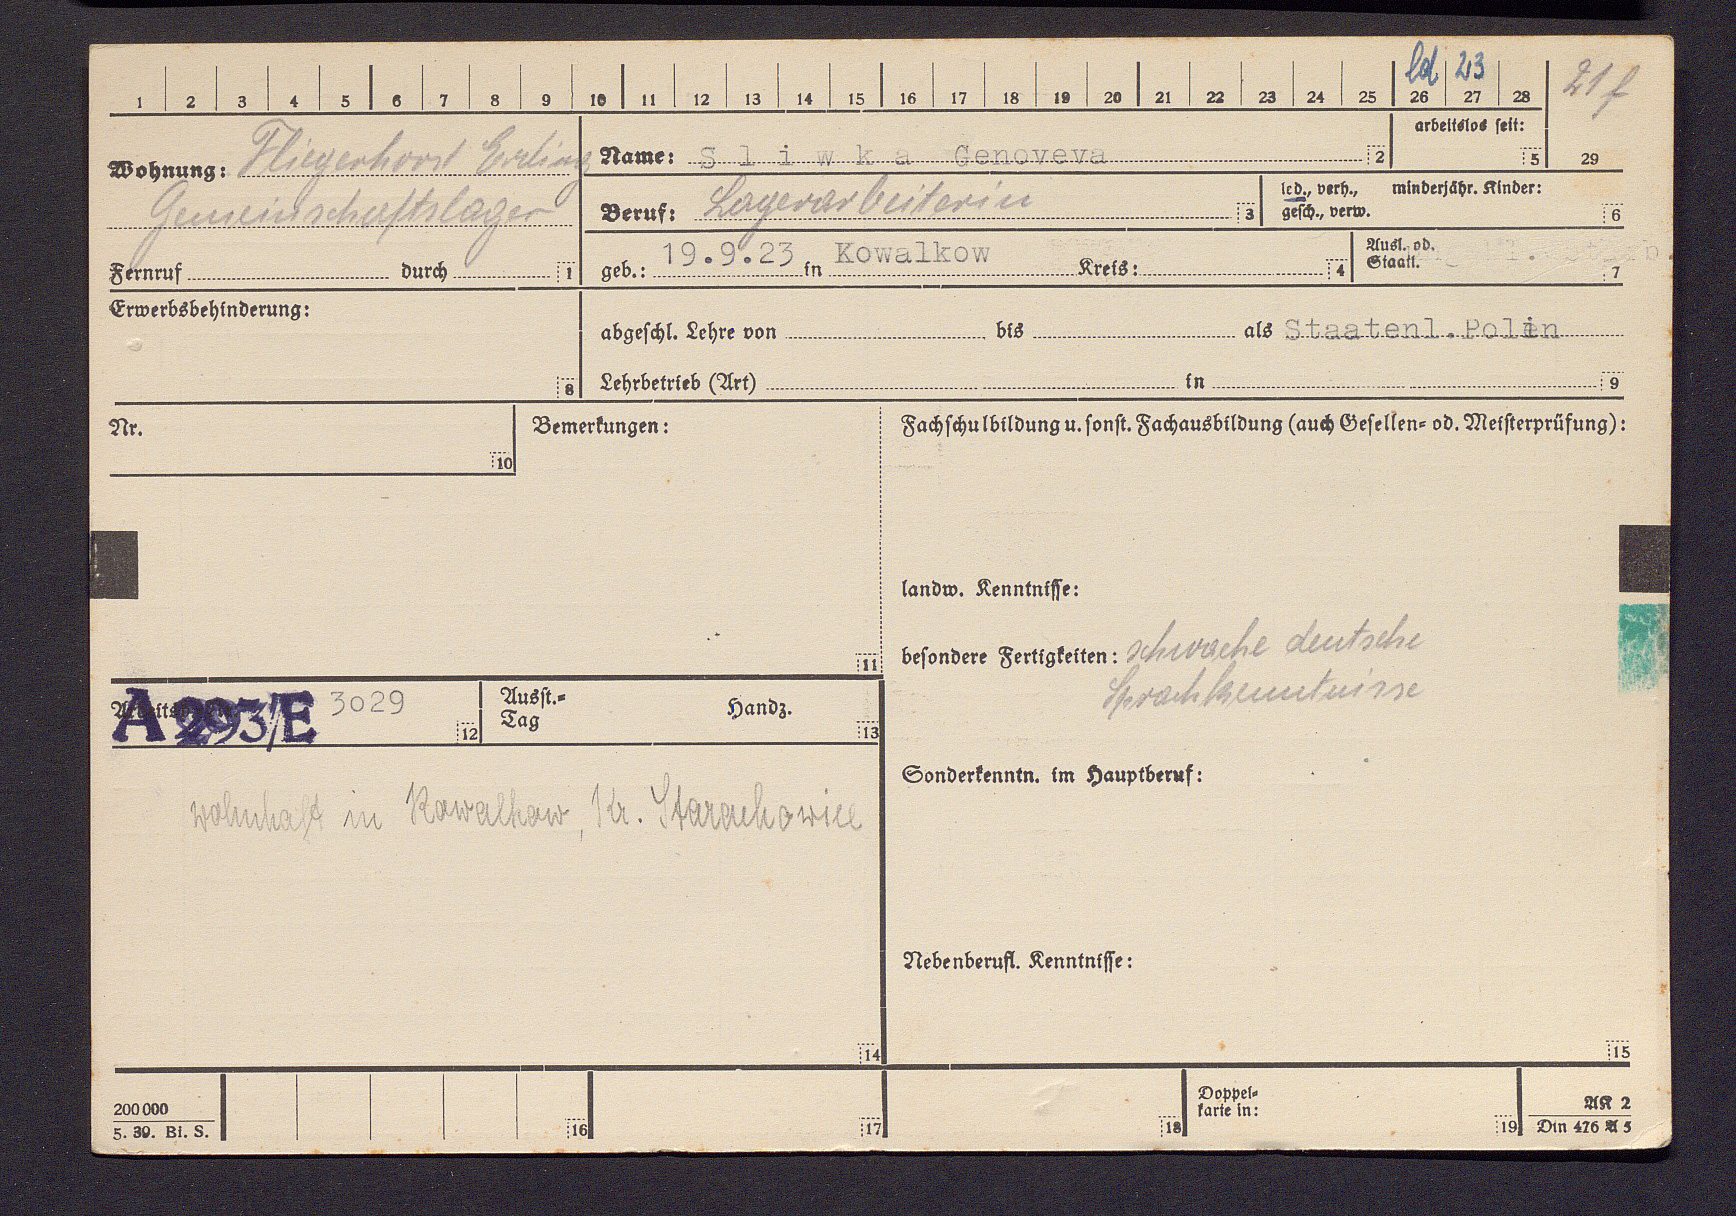 ld 23
21 f
1 2 3 4 5 6 7 8 9 10 11 12 13 14 15 16 17 18 19 20 21 22 23 24 25 26 27 28
arbeitslos seit:
5 29
Wohnung: Fliegerhorst Erding
Gemeinschaftslager
Fernruf durch 1
Name: Sliwka Genoveva 2
Beruf: Lagerarbeiterin 3
led., verh., minderjähr. Kinder:
gesch., verw. 6
geb.: 19.9.23 in Kowalkow Kreis: 4
Ausl. od.
Staatl. 7
Erwerbsbehinderung:
8
abgeschl. Lehre von bis als Staatenl.Polin
Lehrbetrieb (Art) in 9
Nr.
10
Bemerkungen:
11
Fachschulbildung u. sonst. Fachausbildung (auch Gesellen- od. Meisterprüfung):
landw. Kenntnisse:
besondere Fertigkeiten: schwache deutsche
Sprachkenntnisse
A 293/E 3029 12
Ausst.-
Tag Handz. 13
wohnhaft in Kowalkow, Kr. Starachowice
14
Sonderkenntn. im Hauptberuf:
Nebenberufl. Kenntnisse:
15
200 000
5. 39. Bi. S.
16
17
18
Doppel-
karte in:
19
AK 2
Din 476 A 5